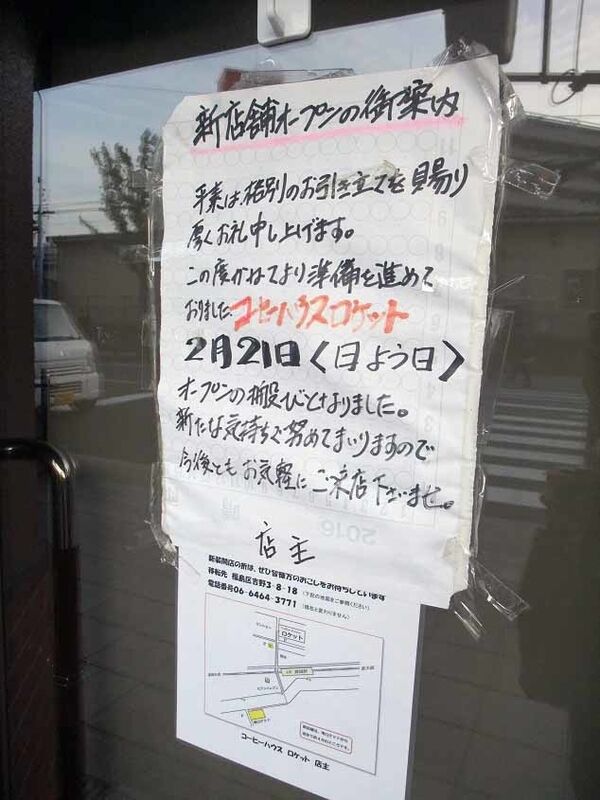 新店舗オープンの御案内
平素は格別のお引き立てを賜り
厚くお礼申し上げます。
この度かねてより準備を進めて
おりました コーヒーハウスロケット
2月21日〈日よう日〉
オープンの搬びとなりました。
新たな気持ちで努めてまいりますので
今後ともお気軽にご来店下さいませ。
2016
店主
新装開店の折は、ぜひ皆様方のおこしをお待ちしています
移転先 福島区吉野3-8-18 (下記の地図をご参照ください)
電話番号06-6464-3771 (現在と変わりません)
ロケット
コーヒーハウス ロケット 店主